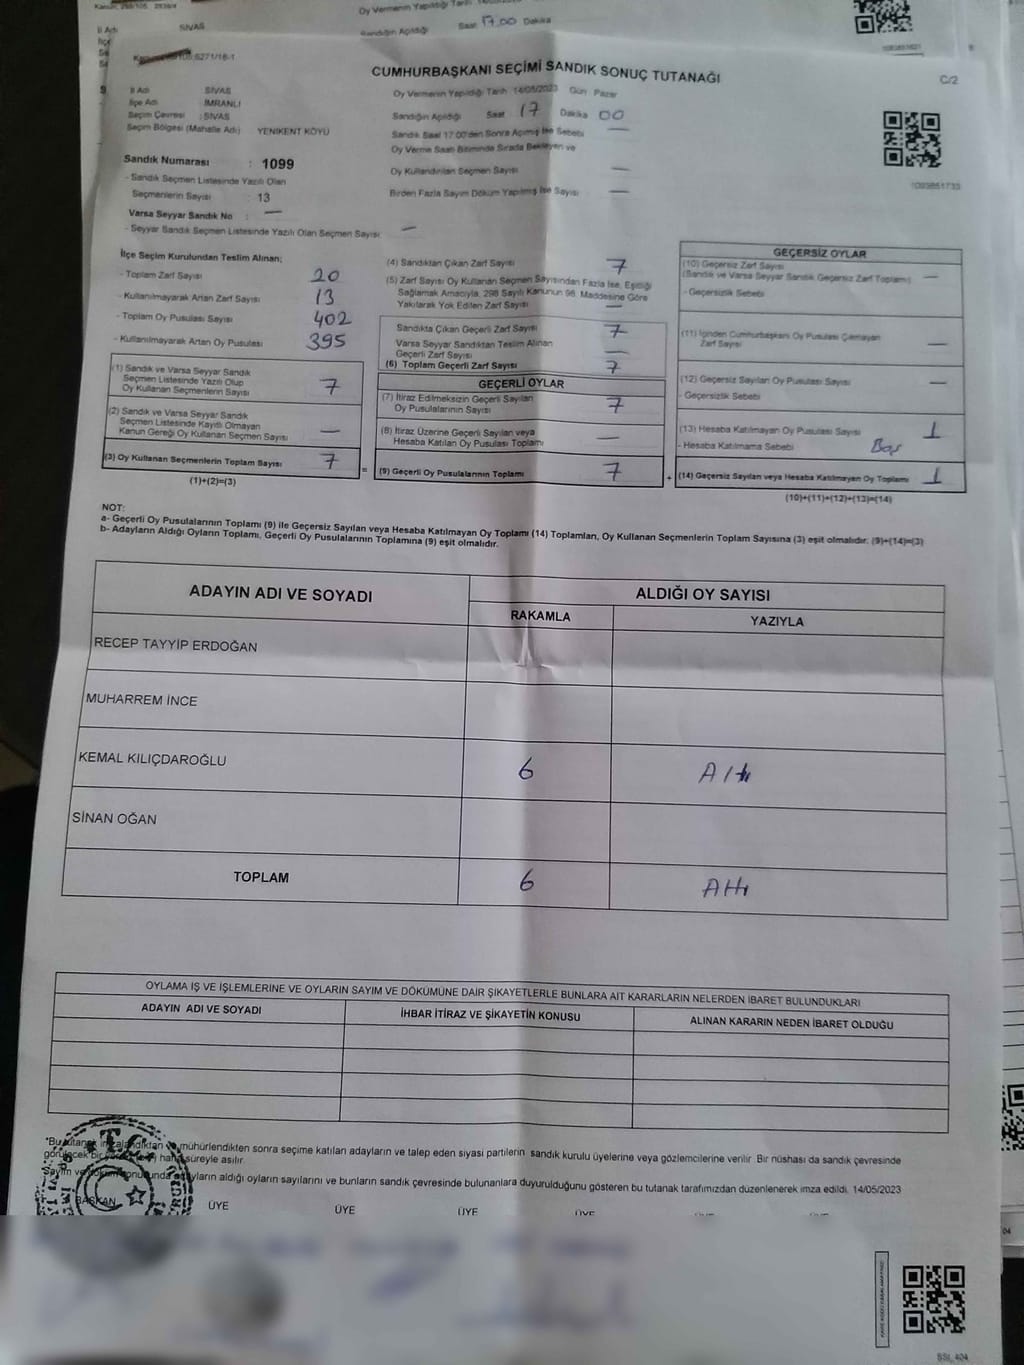 Oy Vermenin Yapıldığı Tarih
İl Adı SİVAS
Sandığın Açıldığı Saat 17.00 Dakika
CUMHURBAŞKANI SEÇİMİ SANDIK SONUÇ TUTANAĞI
C/2
İl Adı : SİVAS
İlçe Adı : İMRANLI
Seçim Çevresi : SİVAS
Seçim Bölgesi (Mahalle Adı) : YENİKENT KÖYÜ
Sandık Numarası : 1099
- Sandık Seçmen Listesinde Yazılı Olan
Seçmenlerin Sayısı : 13
Varsa Seyyar Sandık No : —
- Seyyar Sandık Seçmen Listesinde Yazılı Olan Seçmen Sayısı : —
Oy Vermenin Yapıldığı Tarih 14/05/2023 Gün Pazar
Sandığın Açıldığı Saat 17 Dakika 00
Sandık Saat 17:00'den Sonra Açılmış İse Sebebi —
Oy Verme Saati Bitiminde Sırada Bekleyen ve
Oy Kullandırılan Seçmen Sayısı —
Birden Fazla Sayım Döküm Yapılmış İse Sayısı —
1093851733
İlçe Seçim Kurulundan Teslim Alınan;
- Toplam Zarf Sayısı 20
- Kullanılmayarak Artan Zarf Sayısı 13
- Toplam Oy Pusulası Sayısı 402
- Kullanılmayarak Artan Oy Pusulası 395
(1) Sandık ve Varsa Seyyar Sandık
Seçmen Listesinde Yazılı Olup
Oy Kullanan Seçmenlerin Sayısı 7
(2) Sandık ve Varsa Seyyar Sandık
Seçmen Listesinde Kayıtlı Olmayan
Kanun Gereği Oy Kullanan Seçmen Sayısı —
(3) Oy Kullanan Seçmenlerin Toplam Sayısı 7
(1)+(2)=(3)
(4) Sandıktan Çıkan Zarf Sayısı 7
(5) Zarf Sayısı Oy Kullanan Seçmen Sayısından Fazla İse, Eşitliği
Sağlamak Amacıyla, 298 Sayılı Kanunun 98. Maddesine Göre
Yakılarak Yok Edilen Zarf Sayısı —
Sandıkta Çıkan Geçerli Zarf Sayısı 7
Varsa Seyyar Sandıktan Teslim Alınan
Geçerli Zarf Sayısı —
(6) Toplam Geçerli Zarf Sayısı 7
GEÇERLİ OYLAR
(7) İtiraz Edilmeksizin Geçerli Sayılan
Oy Pusulalarının Sayısı 7
(8) İtiraz Üzerine Geçerli Sayılan veya
Hesaba Katılan Oy Pusulası Toplamı —
= (9) Geçerli Oy Pusulalarının Toplamı 7 +
GEÇERSİZ OYLAR
(10) Geçersiz Zarf Sayısı
(Sandık ve Varsa Seyyar Sandık Geçersiz Zarf Toplamı) —
- Geçersizlik Sebebi
(11) İçinden Cumhurbaşkanı Oy Pusulası Çıkmayan
Zarf Sayısı —
(12) Geçersiz Sayılan Oy Pusulası Sayısı —
- Geçersizlik Sebebi
(13) Hesaba Katılmayan Oy Pusulası Sayısı 1
- Hesaba Katılmama Sebebi Boş
(14) Geçersiz Sayılan veya Hesaba Katılmayan Oy Toplamı 1
(10)+(11)+(12)+(13)=(14)
NOT:
a- Geçerli Oy Pusulalarının Toplamı (9) ile Geçersiz Sayılan veya Hesaba Katılmayan Oy Toplamı (14) Toplamları, Oy Kullanan Seçmenlerin Toplam Sayısına (3) eşit olmalıdır. (9)+(14)=(3)
b- Adayların Aldığı Oyların Toplamı, Geçerli Oy Pusulalarının Toplamına (9) eşit olmalıdır.
ADAYIN ADI VE SOYADI ALDIĞI OY SAYISI
RAKAMLA YAZIYLA
RECEP TAYYİP ERDOĞAN
MUHARREM İNCE
KEMAL KILIÇDAROĞLU 6 Altı
SİNAN OĞAN
TOPLAM 6 Altı
OYLAMA İŞ VE İŞLEMLERİNE VE OYLARIN SAYIM VE DÖKÜMÜNE DAİR ŞİKAYETLERLE BUNLARA AİT KARARLARIN NELERDEN İBARET BULUNDUKLARI
ADAYIN ADI VE SOYADI İHBAR İTİRAZ VE ŞİKAYETİN KONUSU ALINAN KARARIN NEDEN İBARET OLDUĞU
*Bu tutanak imzalandıktan ve mühürlendikten sonra seçime katılan adayların ve talep eden siyasi partilerin sandık kurulu üyelerine veya gözlemcilerine verilir. Bir nüshası da sandık çevresinde
görülecek bir hafta süreyle asılır.
Sayım ve döküm sonucunda adayların aldığı oyların sayılarını ve bunların sandık çevresinde bulunanlara duyurulduğunu gösteren bu tutanak tarafımızdan düzenlenerek imza edildi. 14/05/2023
BAŞKAN ÜYE ÜYE ÜYE ÜYE ÜYE ÜYE